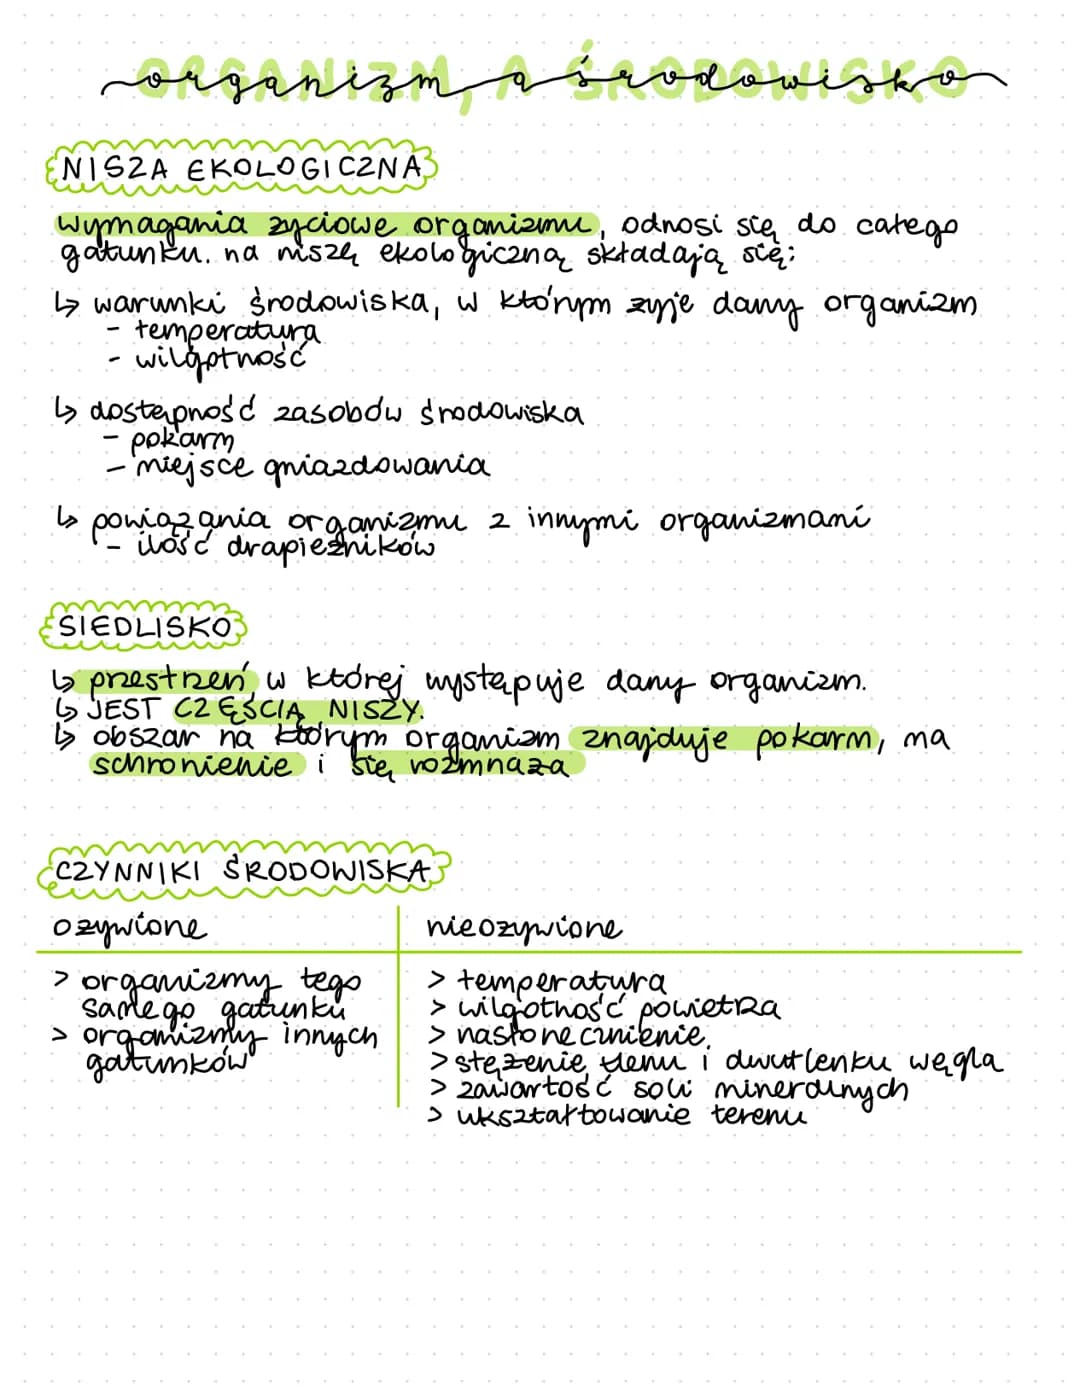 organizm, a środowisko
NISZA EKOLOGICZNA
wymagania życiowe organizmu, odnosi się do całego
gatunku. na niszę ekologiczną składają się:
↳ warunki środowiska, w którym żyje dany organizm
- temperatura
- wilgotność
↳ dostępność zasobów środowiska
- pokarm
- miejsce gniazdowania
↳ powiązania organizmu z innymi organizmami
- ilość drapieżników
SIEDLISKO
↳ przestrzeń w której występuje dany organizm.
↳ JEST CZĘŚCIĄ NISZY.
↳ obszar na którym organizm znajduje pokarm, ma
schronienie i się rozmnaża
CZYNNIKI ŚRODOWISKA
ożywione nieożywione
> organizmy tego
samego gatunku
> organizmy innych
gatunków
> temperatura
> wilgotność powietrza
> nasłonecznienie
> stężenie tlenu i dwutlenku węgla
> zawartość soli mineralnych
> ukształtowanie terenu